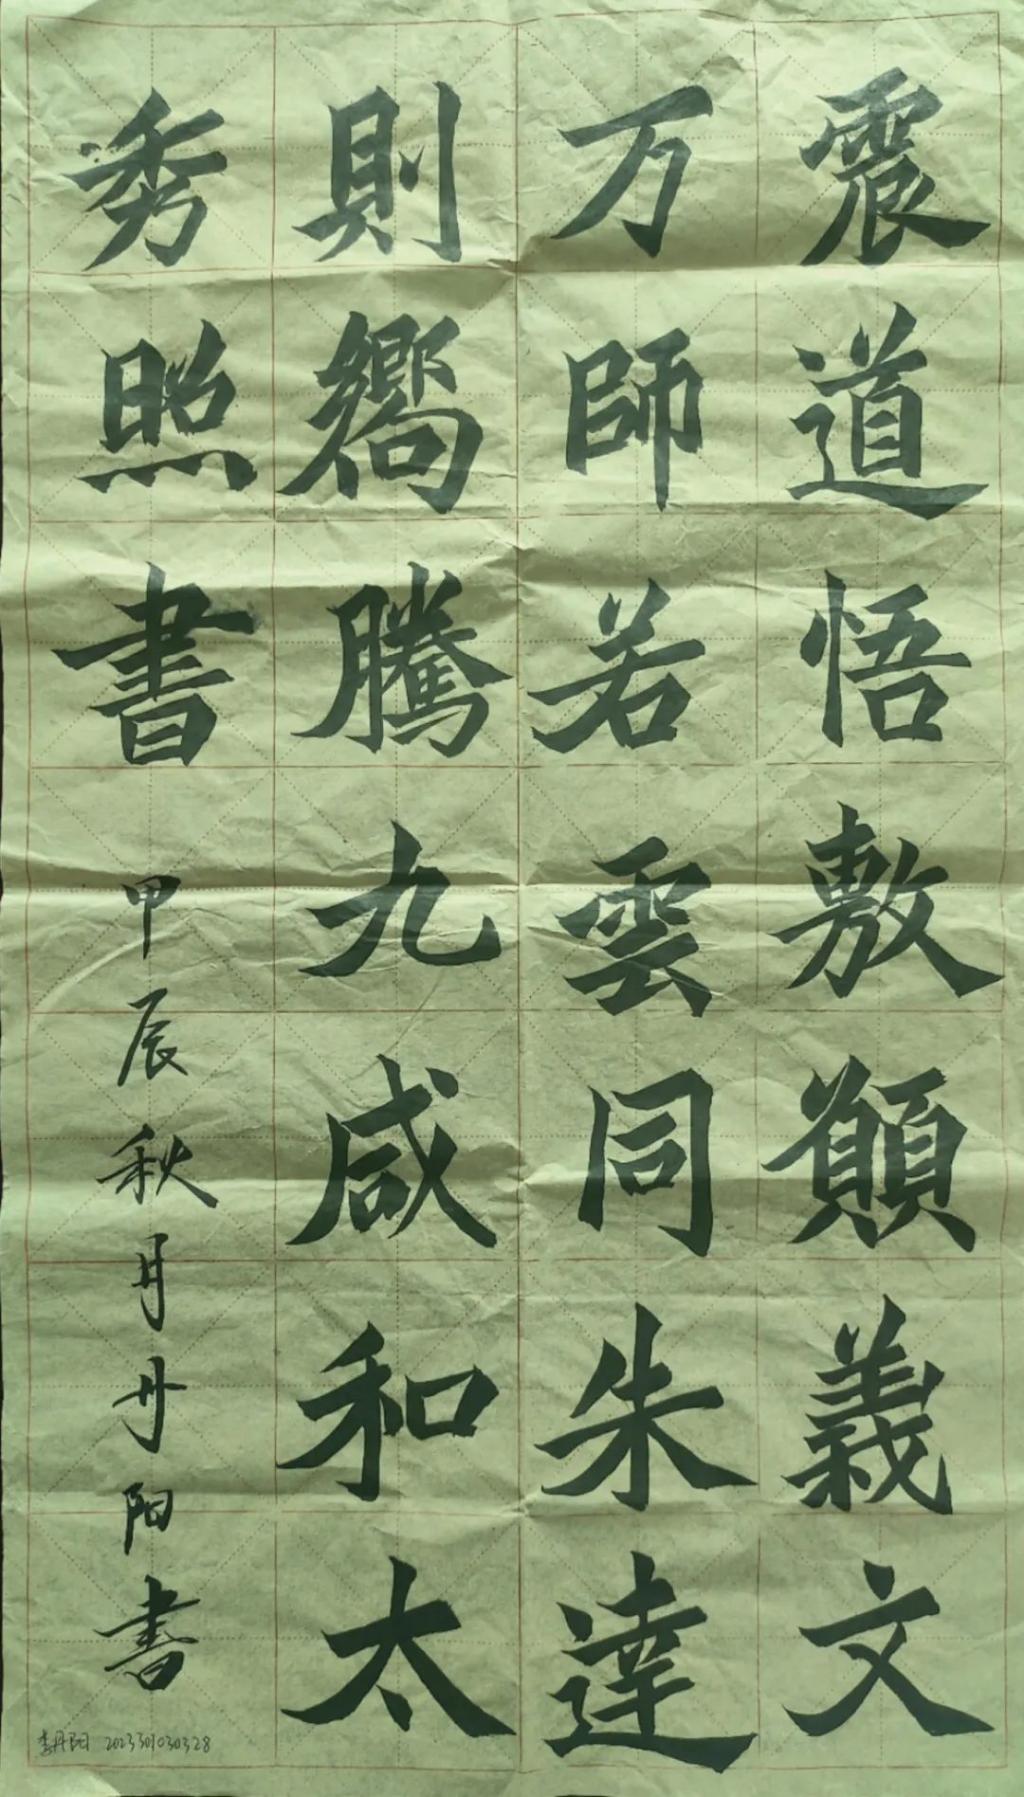 震道悟敷顗義文
万師若雲同朱達
則嚮騰九咸和太
秀照書
甲辰秋月丹阳書
李丹阳 2023301030328